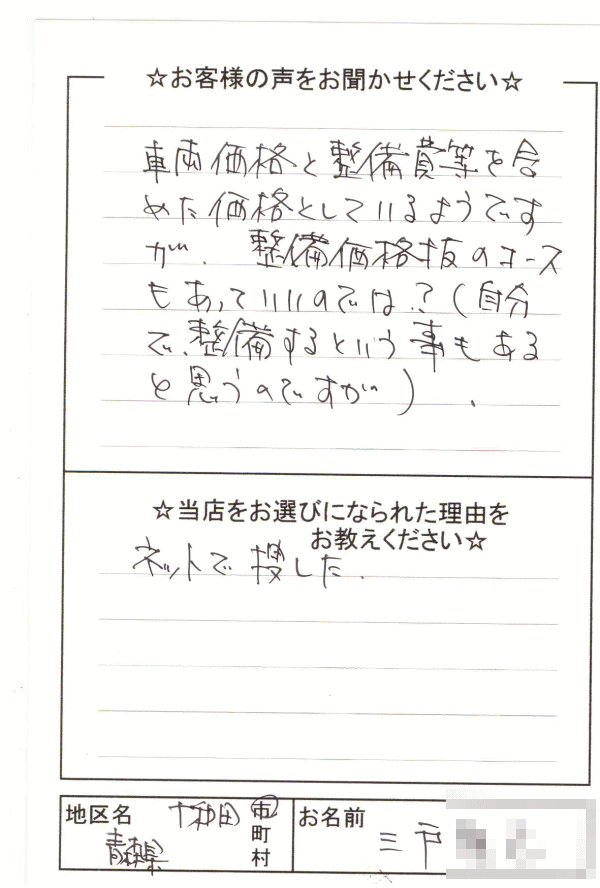 ☆お客様の声をお聞かせください☆
車両価格と整備費等を含
めた価格としているようです
が、整備価格抜のコース
もあっていいのでは?(自分
で、整備するという事もある
と思うのですが)．
☆当店をお選びになられた理由を
お教えください☆
ネットで捜した．
地区名 十和田 市町村 お名前
青森県 三戸